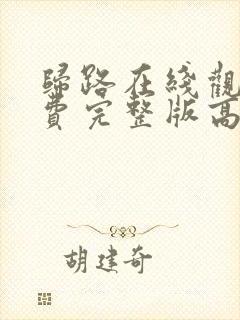 歸路在綫觀
費完整版高
胡建奇